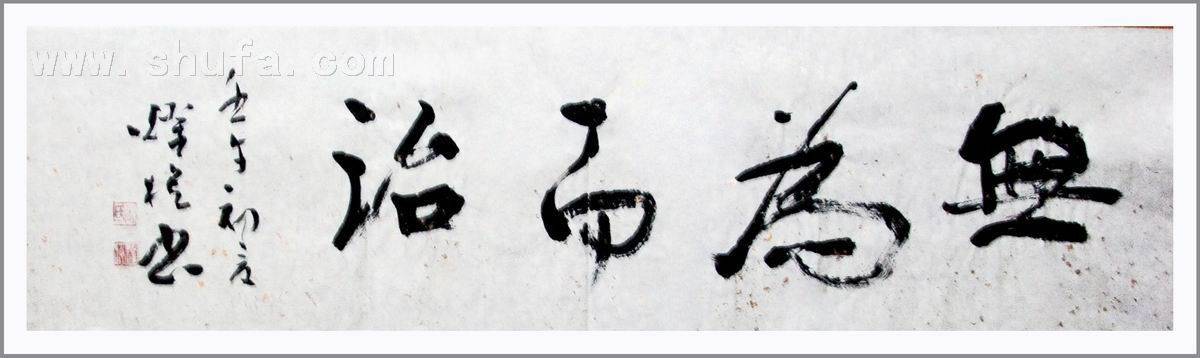 無為而治
壬午初夏
書
www.shufa.com